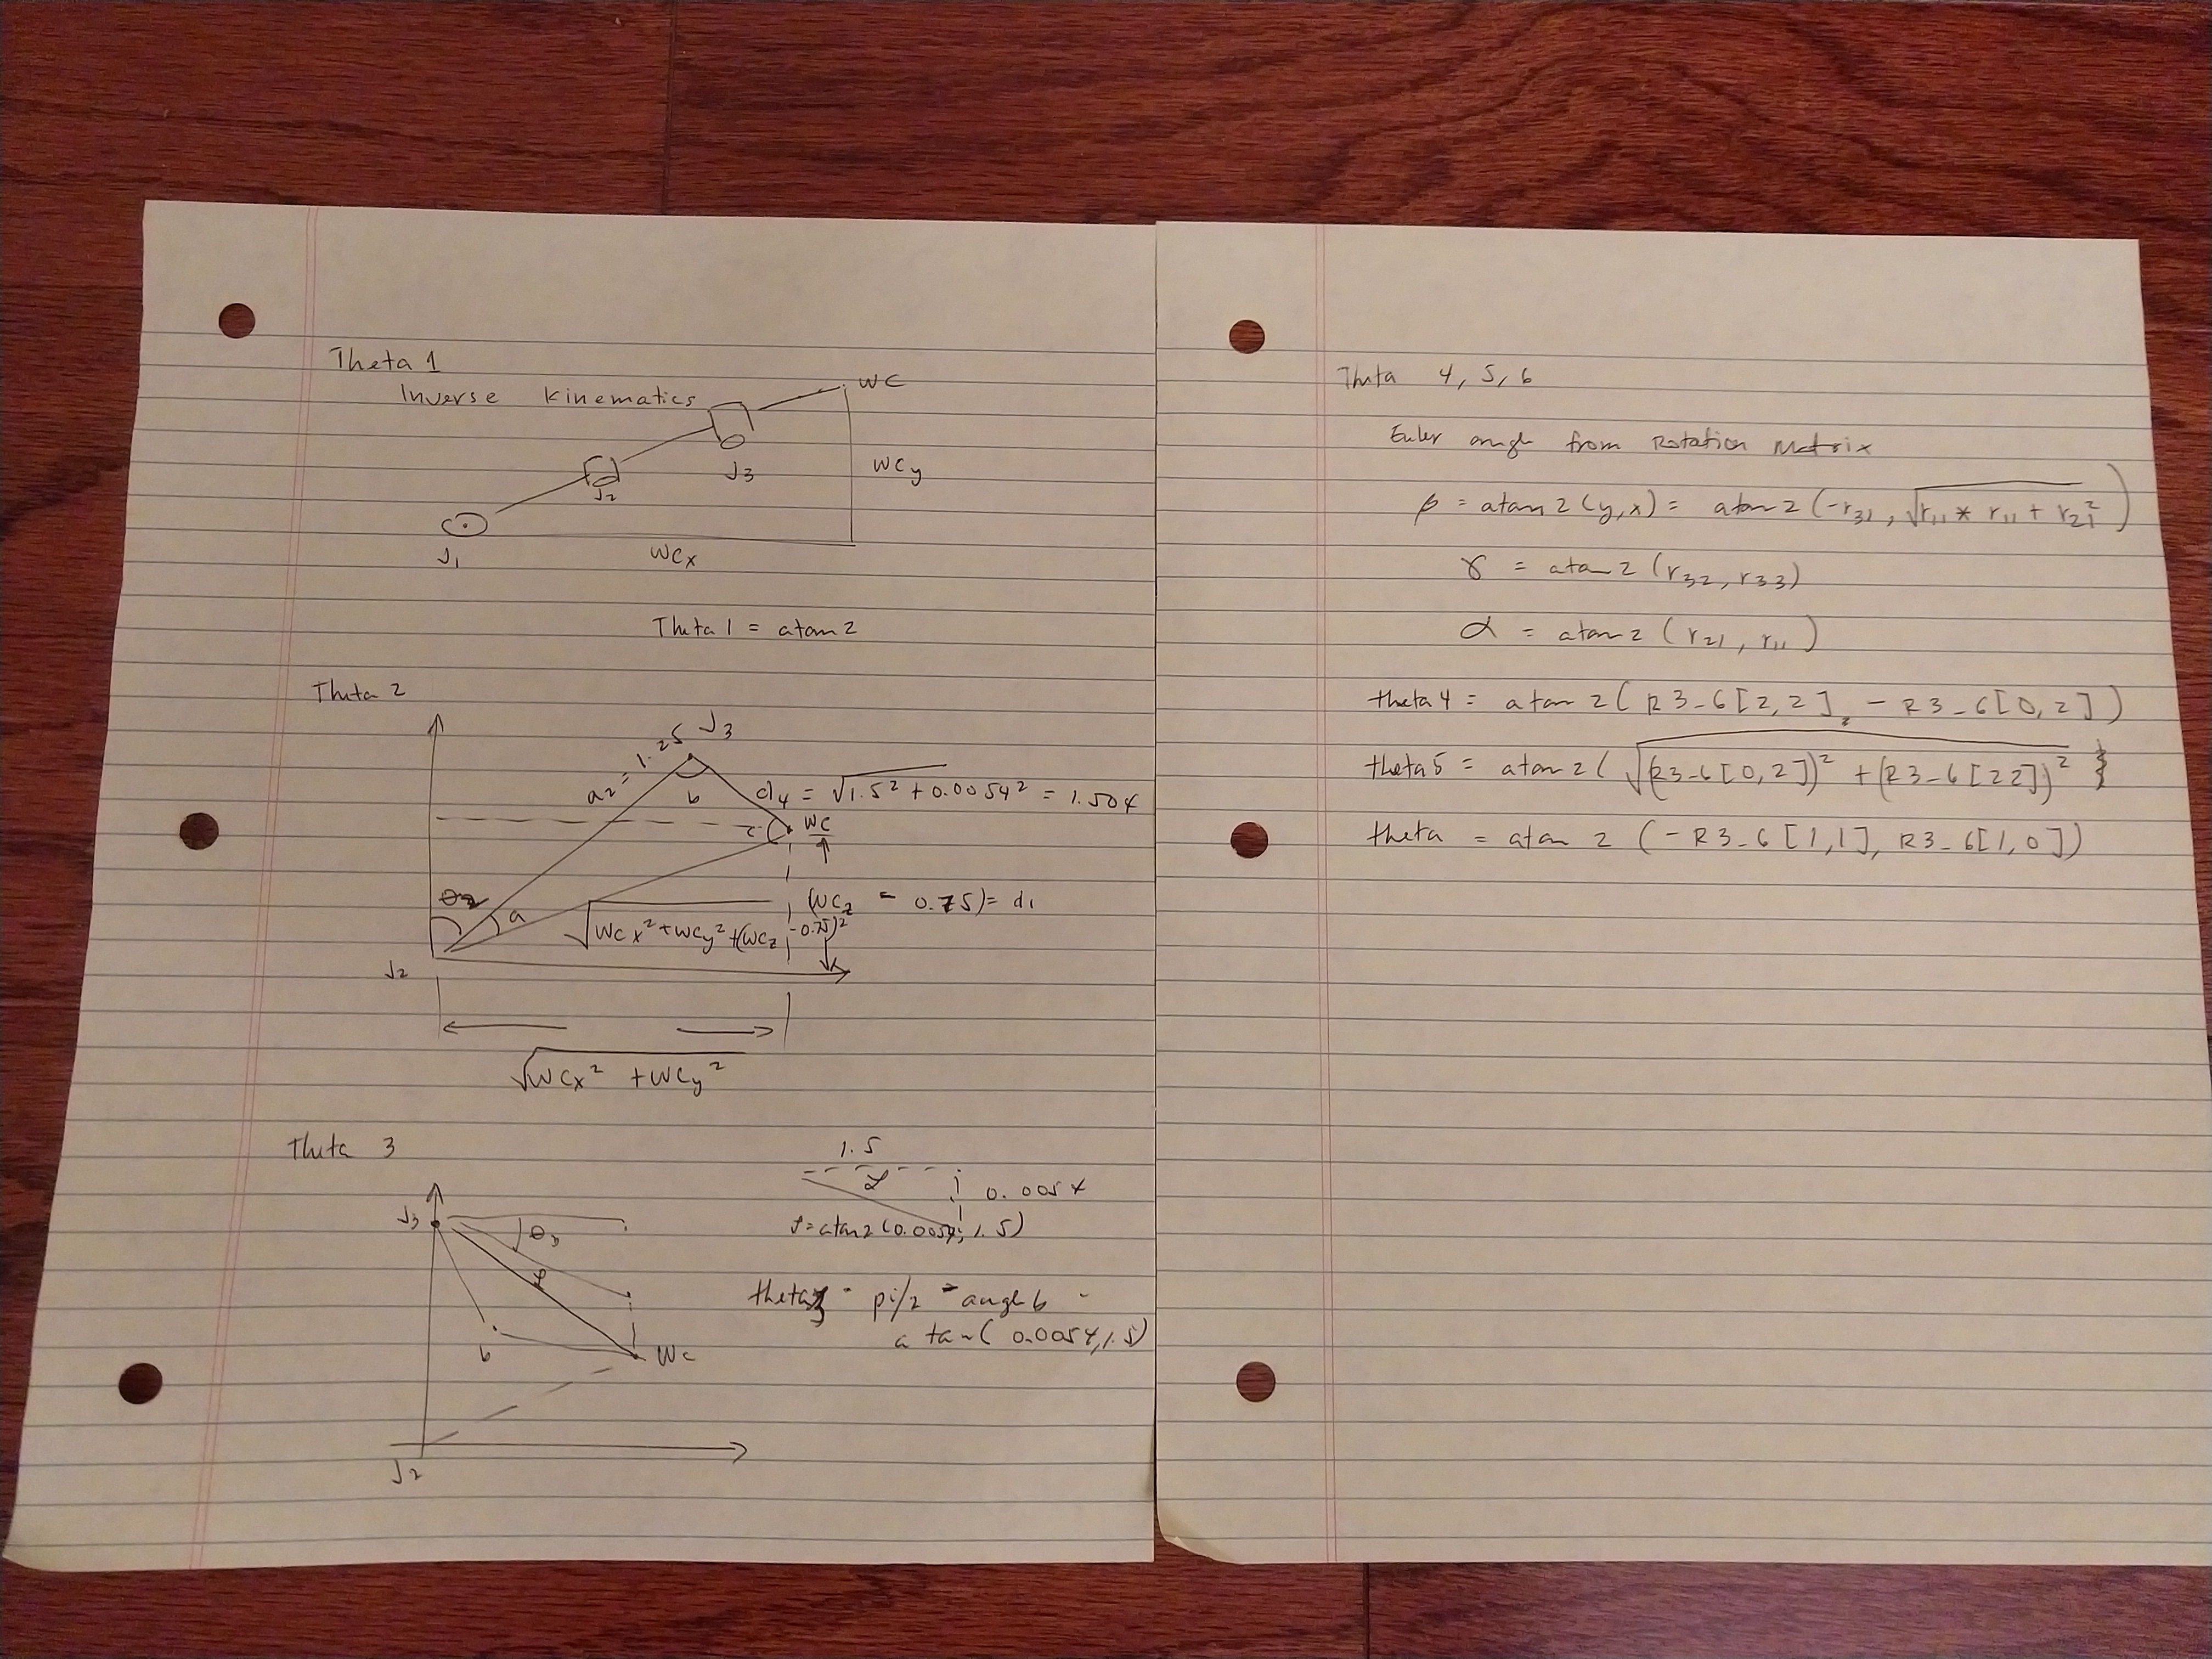 Theta 1
Inverse Kinematics
WC
J3
WCy
J2
J1
WCx
Theta 1 = atan2
Theta 2
J3
a2 = 1.25
b
d4 = √1.5² + 0.0054² = 1.504
c
WC
θ2
a
(WCz - 0.75) = d1
√WCx² + WCy² + (WCz - 0.75)²
J2
√WCx² + WCy²
Theta 3
1.5
0.0054
J3
θ3
= atan2(0.0054, 1.5)
theta3 = pi/2 - angle b -
atan( 0.0054, 1.5)
b
WC
J2
Theta 4, 5, 6
Euler angle from Rotation Matrix
β = atan2(y,x) = atan2(-r31, √r11 * r11 + r21²)
γ = atan2(r32, r33)
α = atan2(r21, r11)
theta4 = atan2( R3_6[2,2], - R3_6[0,2])
theta5 = atan2( √(R3_6[0,2])² + (R3_6[22])²
theta = atan2 (- R3_6[1,1], R3_6[1,0])